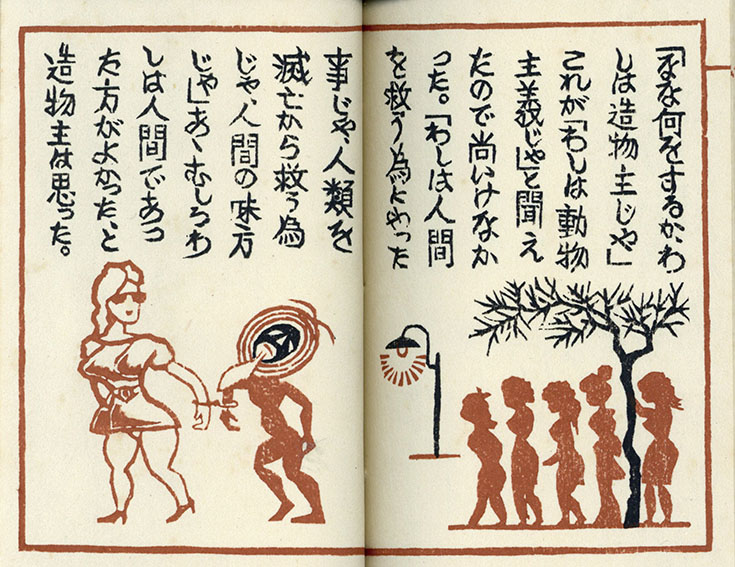 「なな何をするか、わ
しは造物主じや」
これが「わしは動物
主義じや」と聞え
たので尚いけなか
った。「わしは人間
を救う為にやった
事じや、人類を
滅亡から救う為
じや、人間の味方
じや」あゝむしろわ
しは人間であっ
た方がよかった、と
造物主は思った。